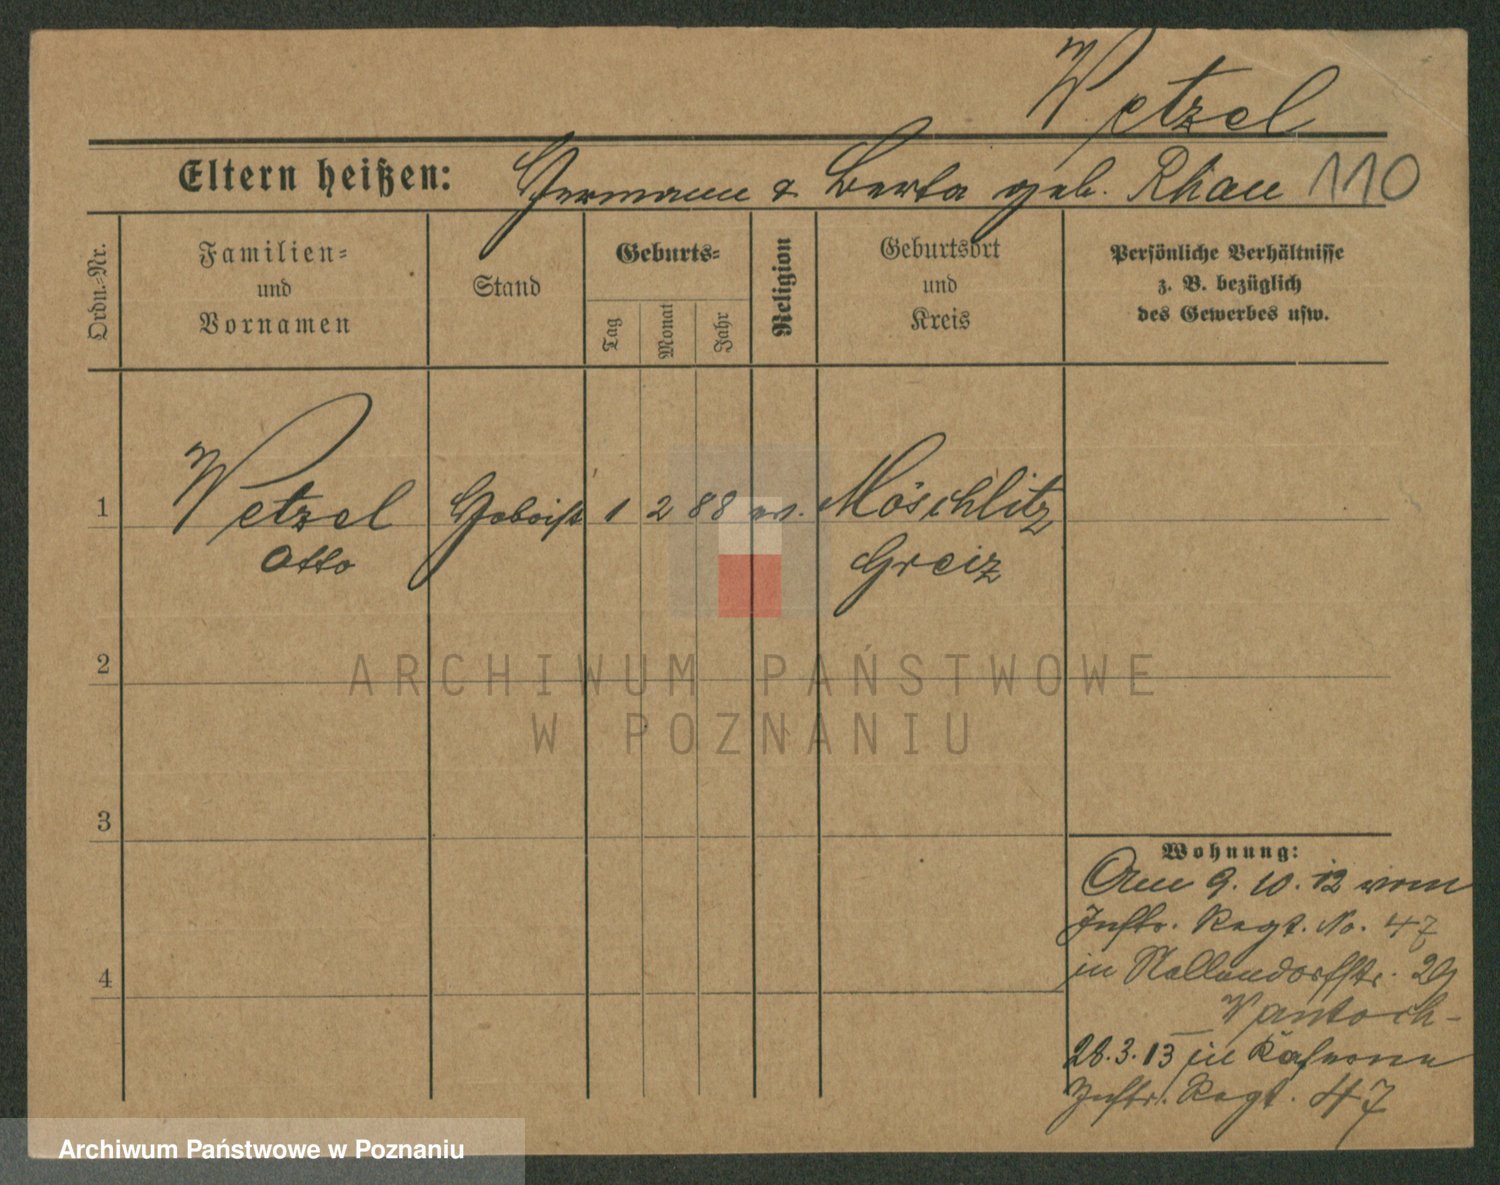 Wetzel
Eltern heißen: Hermann & Berta geb. Rhau 110
Ordn.=Nr.
Familien=
und
Vornamen
Stand
Geburts=
Tag
Monat
Jahr
Religion
Geburtsort
und
Kreis
Persönliche Verhältnisse
z. B. bezüglich
des Gewerbes usw.
1 Wetzel Hoboist 1 2 88 ev. Möschlitz
Otto Greiz
2
3
4
Wohnung:
Am 9. 10. 12 vom
Inftr. Regt. No. 47
in Nollendorfstr. 29
28.3.13 in Kaserne
Inftr. Regt. 47
ARCHIWUM PAŃSTWOWE
W POZNANIU
Archiwum Państwowe w Poznaniu